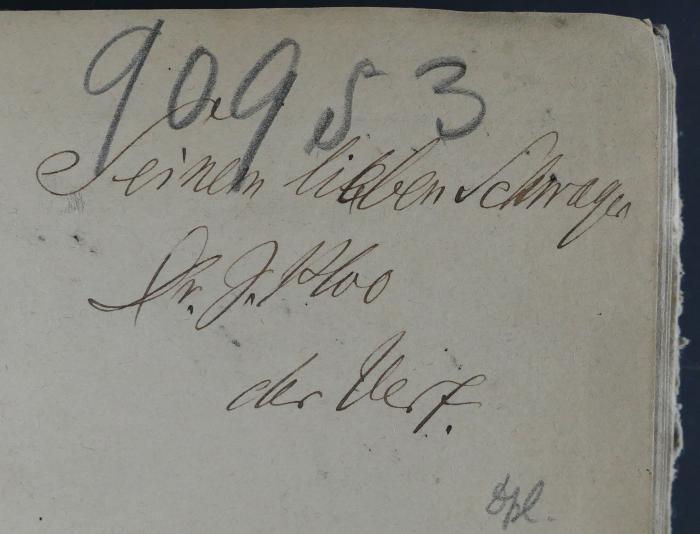 90953
Seinem lieben Schwager
Dr. J. Kloo
der Verf.
Dpl.